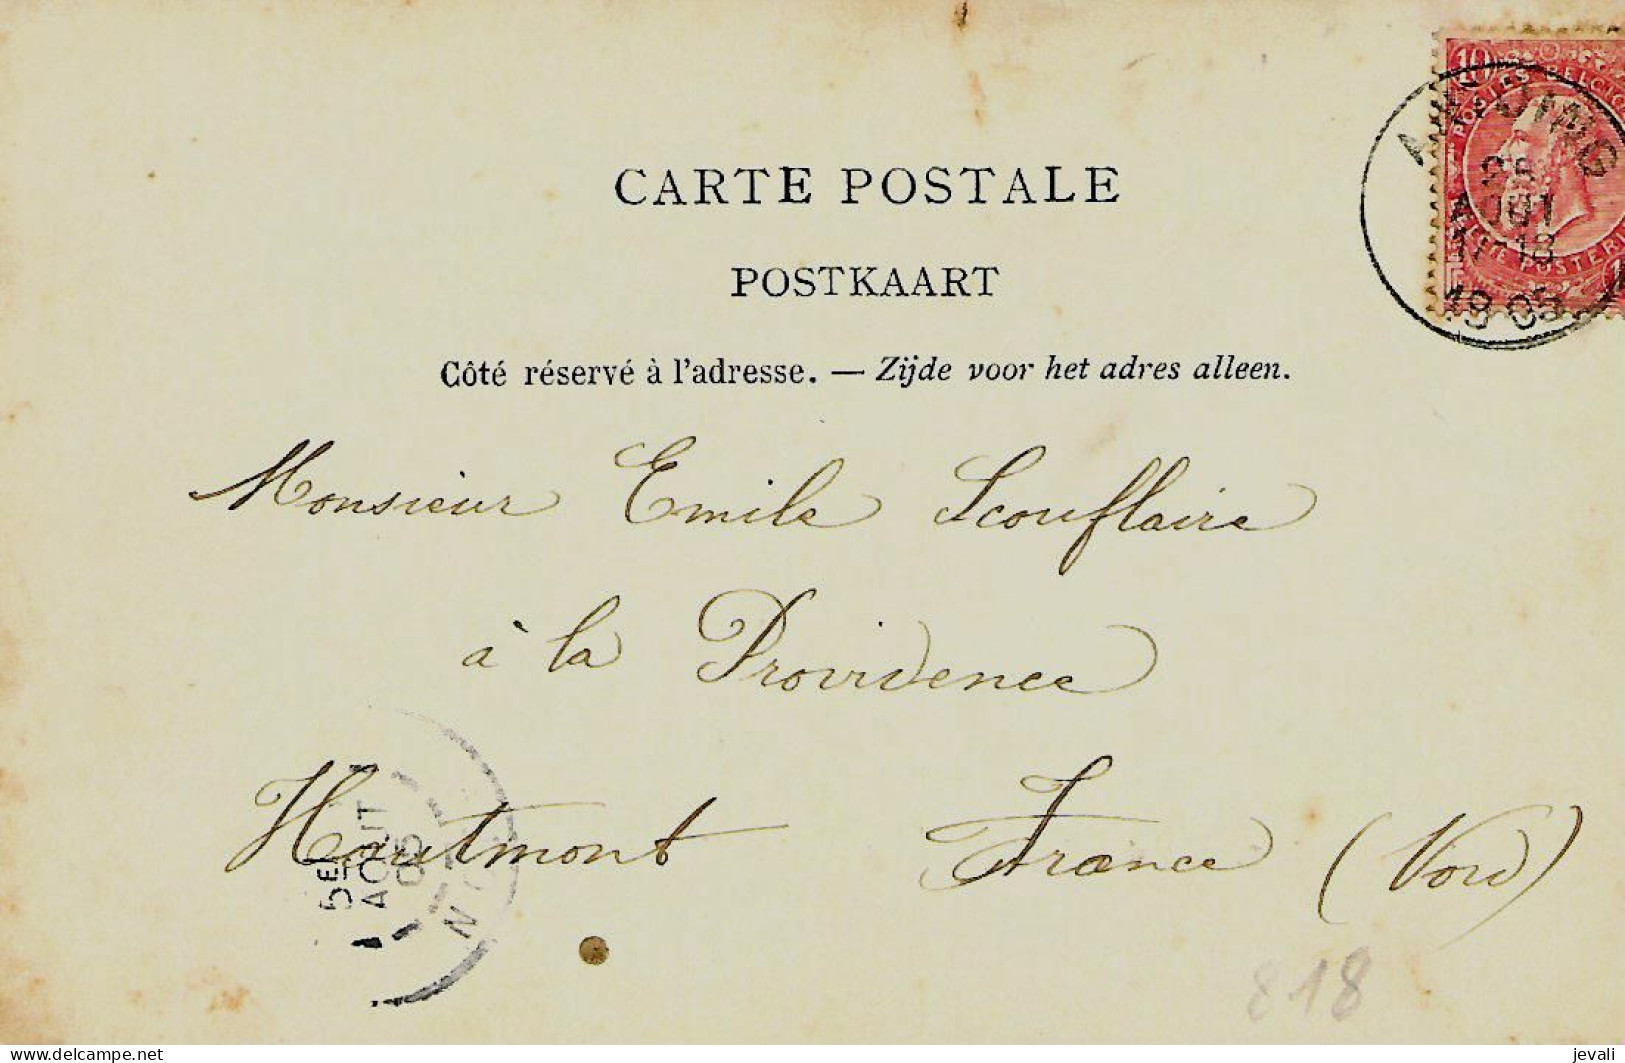 CARTE POSTALE
POSTKAART
Côté réservé à l'adresse. — Zijde voor het adres alleen.
10
POSTES BELGIQUE
ANTOING
AOUT
1905
Monsieur Emile Scouflaire
à la Providence
Hautmont France (Nord)
5E
AOUT
05
818
delcampe.net
jevali